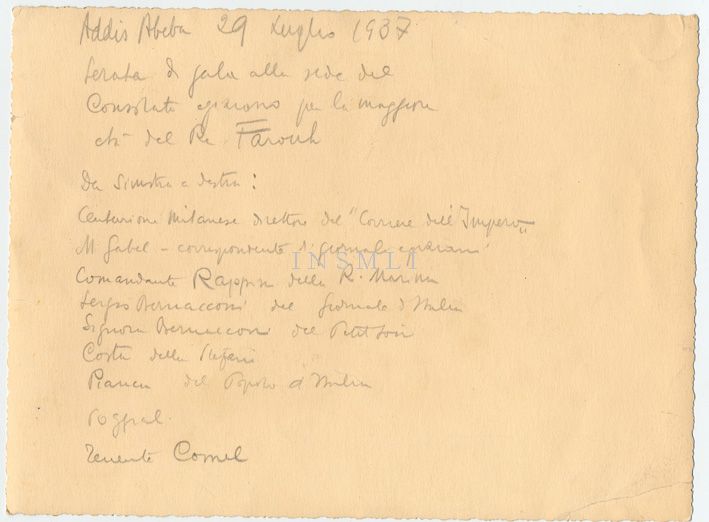 Addis Abeba 29 Luglio 1937
Serata di gala alla sede del
Consolato egiziano per la maggiore
età del Re Farouk
Da Sinistra a destra:
Centurione Milanese direttore del "Corriere dell'Impero"
M Gabel - corrispondente di giornali egiziani
INSMLI
Comandante della R. Marina
Sergio Bernacconi del Giornale d'Italia
Signora Bernacconi del Petit Soir
Costa della Stefani
del Popolo d'Italia
Tenente